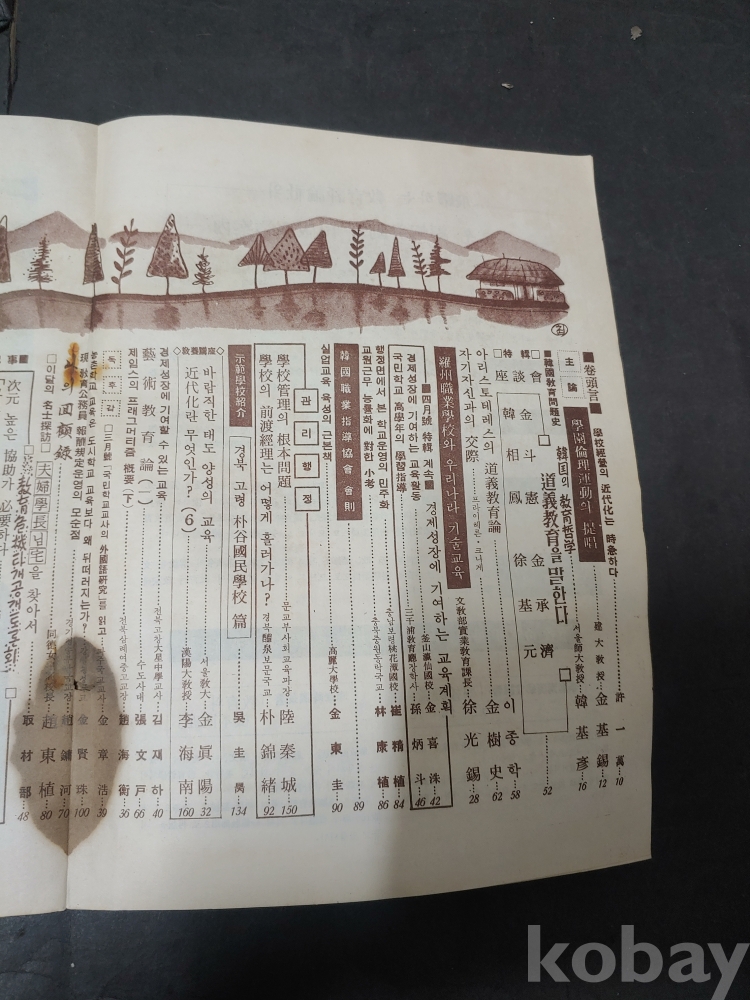 ■卷頭言■
學校經營의 近代化는 時急하다……許一萬…10
主論
學園倫理運動의 提唱……建大敎授…金基錫…12
■韓國敎育問題史 韓国의 敎育哲学……서울師大敎授…韓基彦…16
特輯 座談會
道義教育을 말한다
金斗憲 金承濟
韓相鳳 徐基元
……52
□자기자신과의 交際……프라이헤른·크니게…이종학…58
아리스토테레스의 道義敎育論……金樹史…62
羅州職業學校와 우리나라 기술교육……文敎部實業敎育課長…徐光錫…28
■四月號 特輯 계속■ 경제성장에 기여하는 교육계획
경제성장에 기여하는 교육활동……釜山瀛仙國校…金喜洙…42
국민학교 高學年의 學習指導……三千浦敎育廳장학사…孫炳斗…46
행정면에서 본 학교운영의 민주화……충남보령桃花潭國校…崔精植…84
교원근무 능률화에 對한 小考……林康植…86
韓國職業指導協會 會則……89
실업교육 육성의 근본책……高麗大學校…金東圭…90
관리행정
學校管理의 根本問題……문교부사회교육과장…陸泰城…150
學校의 前渡經理는 어떻게 흘러가나?……경북醴泉보문국교…朴錦緖…92
示範學校紹介
경북 고령 朴谷國民學校 篇……吳圭昺…134
◇敎養講座◇
바람직한 태도 양성의 교육……서울敎大…金眞陽…32
近代化란 무엇인가?(6)……漢陽大敎授…李海南…160
경제성장에 기여할 수 있는 교육……전북고창大星中學교사…김재하…40
藝術教育論(一)……수도사대…張文戸…66
제임스의 프래그머리즘 概要(下)……전북삼례여중교장…趙海衡…36
독후감
□三月號「국민학교교사의 外國語硏究」를 읽고……金章浩…39
농촌학교 교육은 도시학교 교육보다 왜 뒤떨어지는가?……金賢珠…100
現 敎育公務員 報酬規定운영의 모순점……趙鏞河…70
의 回顧錄
□이달의 名士探訪□
夫婦學長님宅을 찾아서……趙東植…80
次元 높은 協助가 必要하다
敎育危機打開公開토론회
取材部…48
kobay